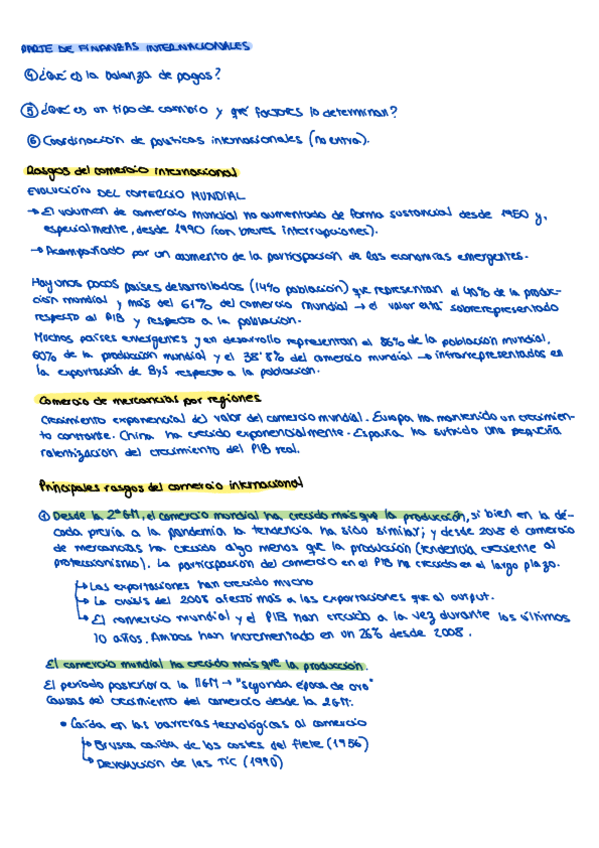 PARTE DE FINANZAS INTERNACIONALES
④ ¿Qué es la balanza de pagos?
⑤ ¿Qué es un tipo de cambio y qué factores lo determinan?
⑥ Coordinación de políticas internacionales (no entra).
Rasgos del comercio internacional
EVOLUCIÓN DEL COMERCIO MUNDIAL
→ El volumen de comercio mundial ha aumentado de forma sustancial desde 1950 y,
especialmente, desde 1990 (con breves interrupciones).
→ Acompañado por un aumento de la participación de las economías emergentes.
Hay unos pocos países desarrollados (14% población) que representan el 40% de la produc-
ción mundial y más del 61% del comercio mundial → el valor está sobrerepresentado
respecto al PIB y respecto a la población.
Muchos países emergentes y en desarrollo representan el 86% de la población mundial,
60% de la producción mundial y el 38'8% del comercio mundial → infrarrepresentados en
la exportación de ByS respecto a la población.
Comercio de mercancías por regiones
Crecimiento exponencial del valor del comercio mundial. Europa ha mantenido un crecimien-
to constante. China ha crecido exponencialmente. España ha sufrido una pequeña
ralentización del crecimiento del PIB real.
Principales rasgos del comercio internacional
① Desde la 2ª GM, el comercio mundial ha crecido más que la producción, si bien en la dé-
cada previa a la pandemia la tendencia ha sido similar; y desde 2018 el comercio
de mercancías ha crecido algo menos que la producción (tendencia creciente al
proteccionismo). La participación del comercio en el PIB ha crecido en el largo plazo.
↳ Las exportaciones han crecido mucho
↳ La crisis del 2008 afectó más a las exportaciones que al output.
↳ El comercio mundial y el PIB han crecido a la vez durante los últimos
10 años. Ambos han incrementado en un 26% desde 2008.
El comercio mundial ha crecido más que la producción.
El período posterior a la IIGM → "segunda época de oro"
Causas del crecimiento del comercio desde la 2GM:
• Caída en las barreras tecnológicas al comercio
↳ Brusca caída de los costes del flete (1956)
↳ Devolución de las TIC (1990)